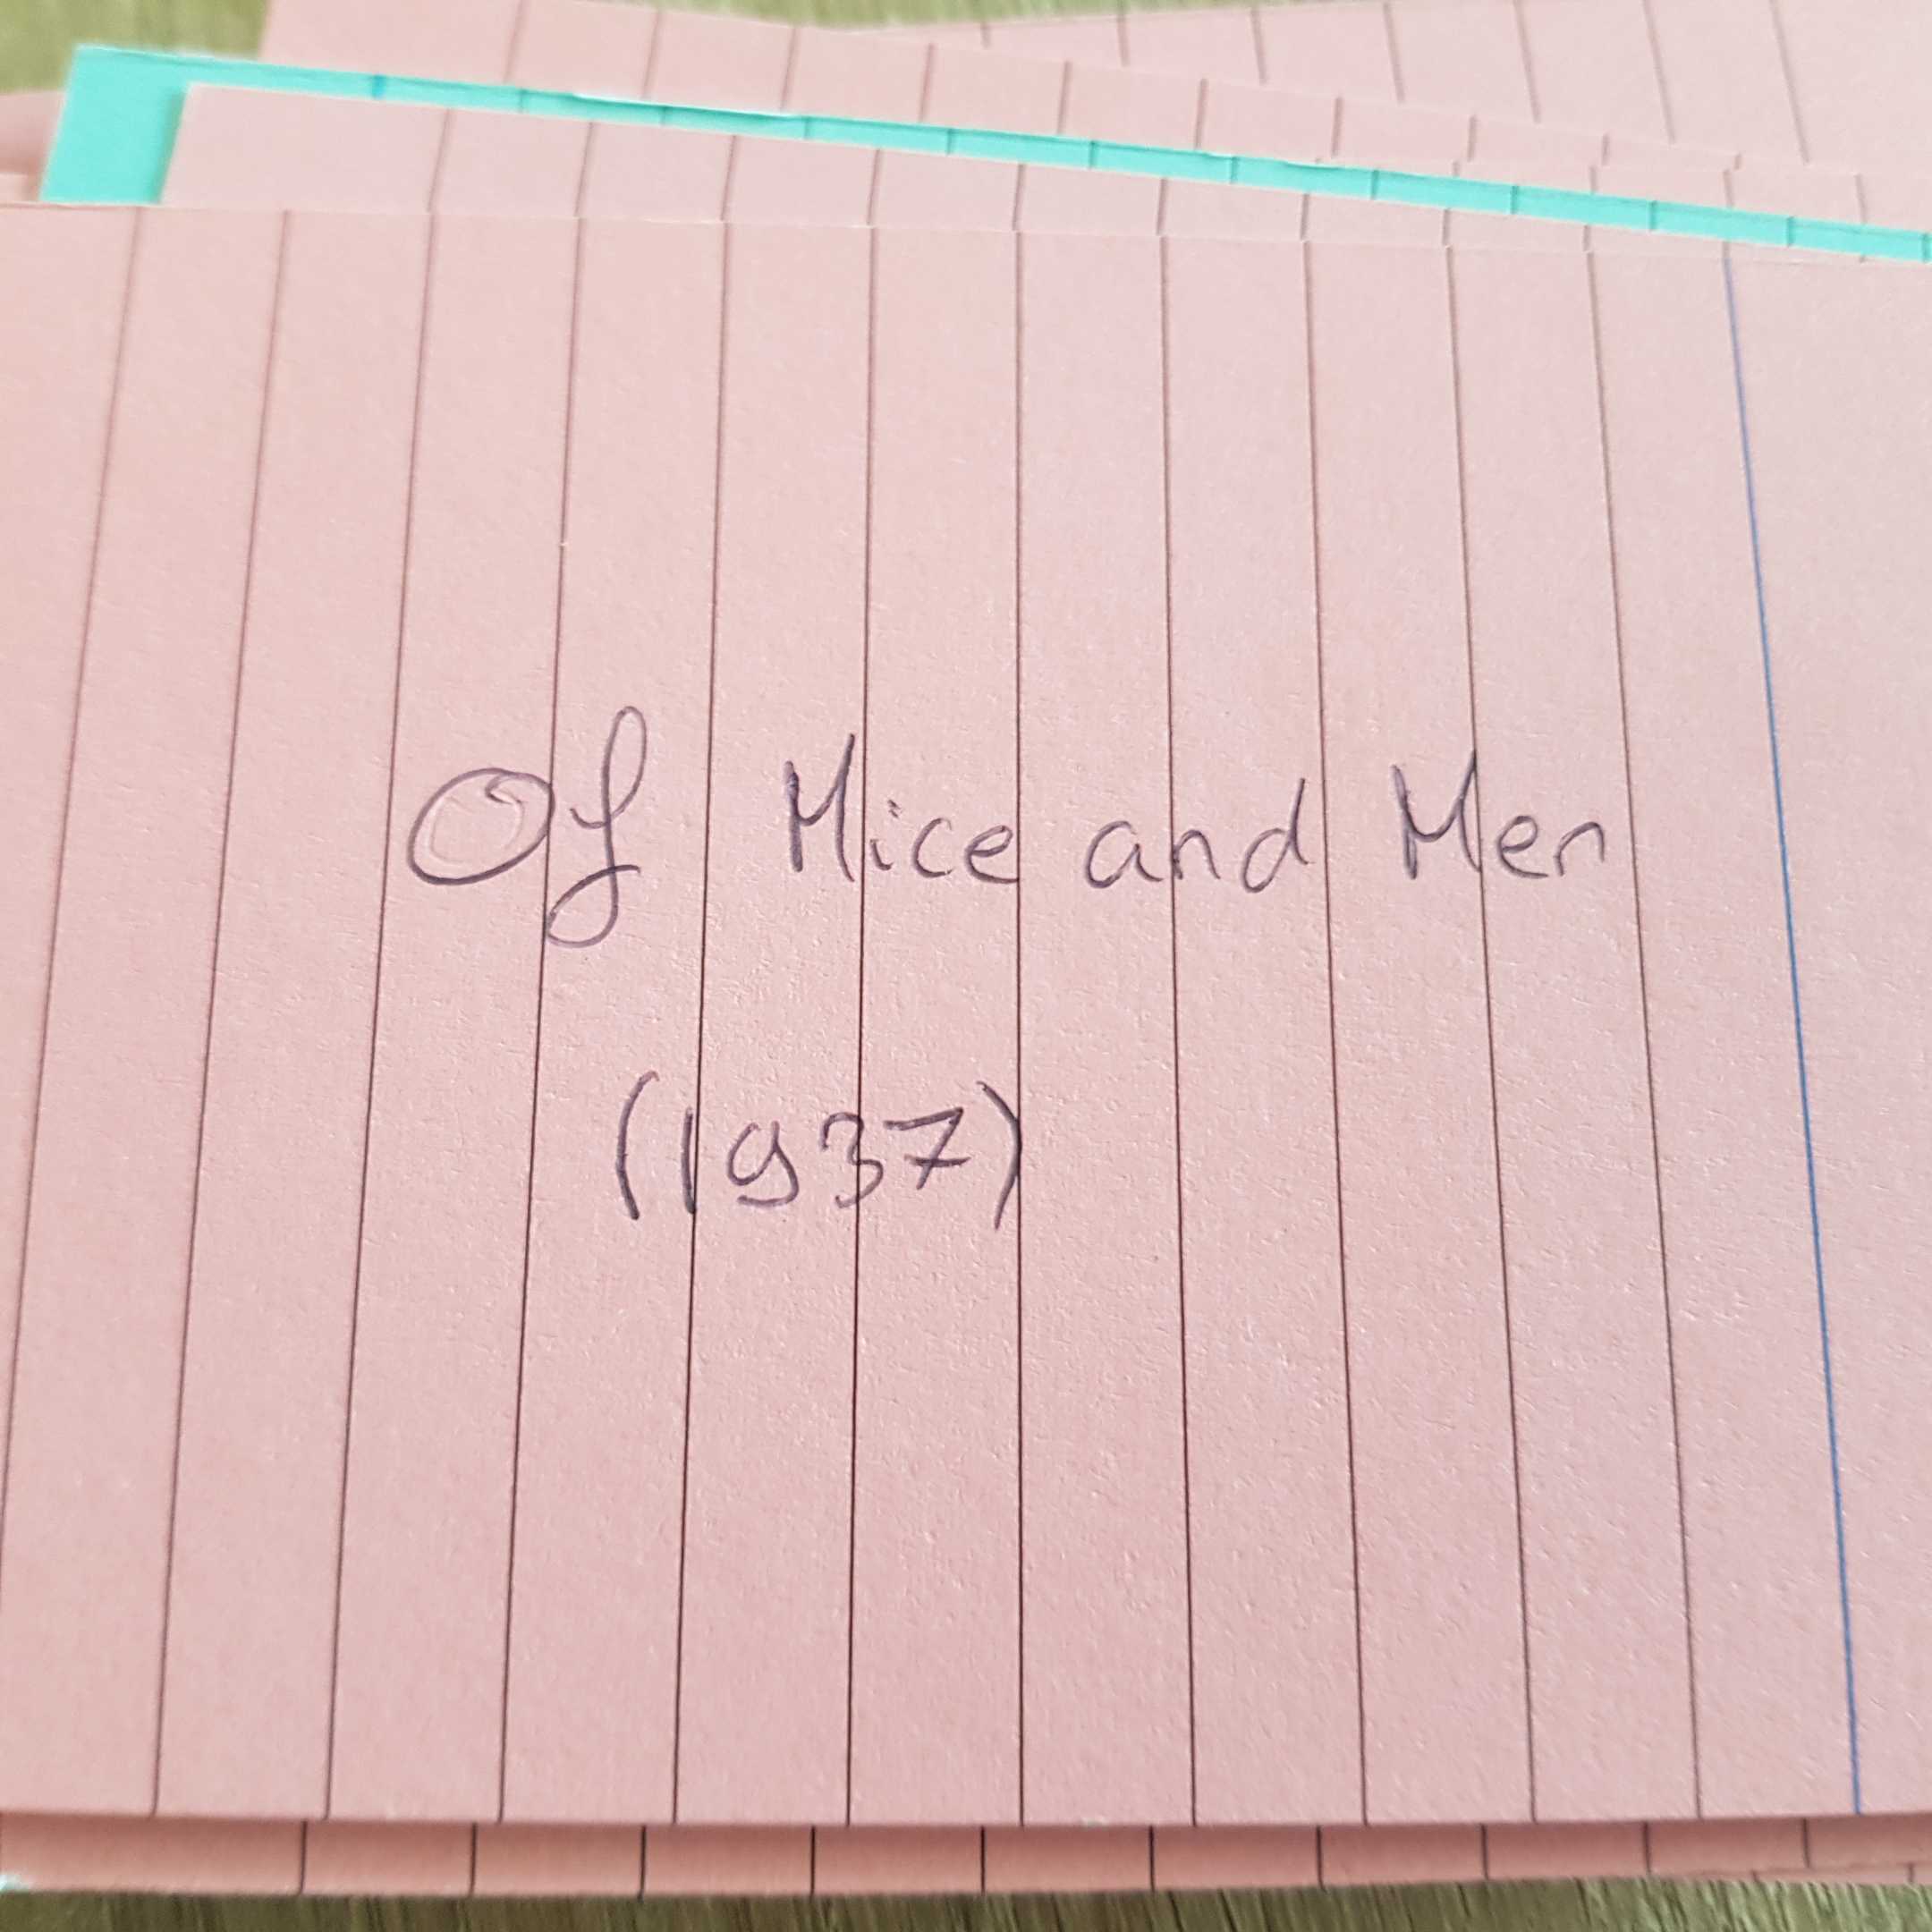 Of Mice and Men
(1937)